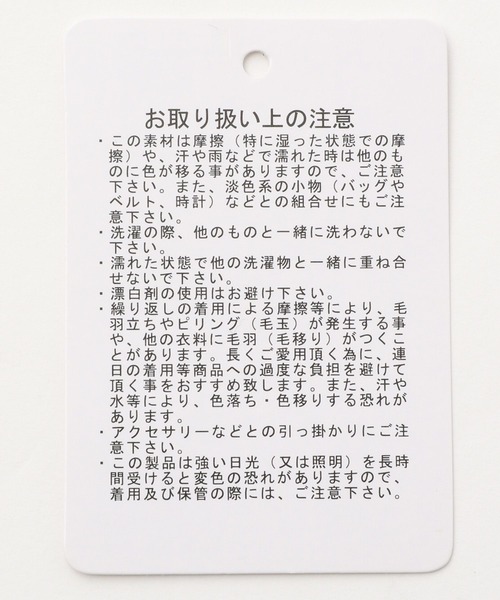 お取り扱い上の注意
・この素材は摩擦（特に湿った状態での摩
擦）や、汗や雨などで濡れた時は他のも
のに色が移る事がありますので、ご注意
下さい。また、淡色系の小物（バッグや
ベルト、時計）などとの組合せにもご注
意下さい。
・洗濯の際、他のものと一緒に洗わないで
下さい。
・濡れた状態で他の洗濯物と一緒に重ね合
せないで下さい。
・漂白剤の使用はお避け下さい。
・繰り返しの着用による摩擦等により、毛
羽立ちやピリング（毛玉）が発生する事
や、他の衣料に毛羽（毛移り）がつくこ
とがあります。長くご愛用頂く為に、連
日の着用等商品への過度な負担を避けて
頂く事をおすすめ致します。また、汗や
水等により、色落ち・色移りする恐れが
あります。
・アクセサリーなどとの引っ掛かりにご注
意下さい。
・この製品は強い日光（又は照明）を長時
間受けると変色の恐れがありますので、
着用及び保管の際には、ご注意下さい。